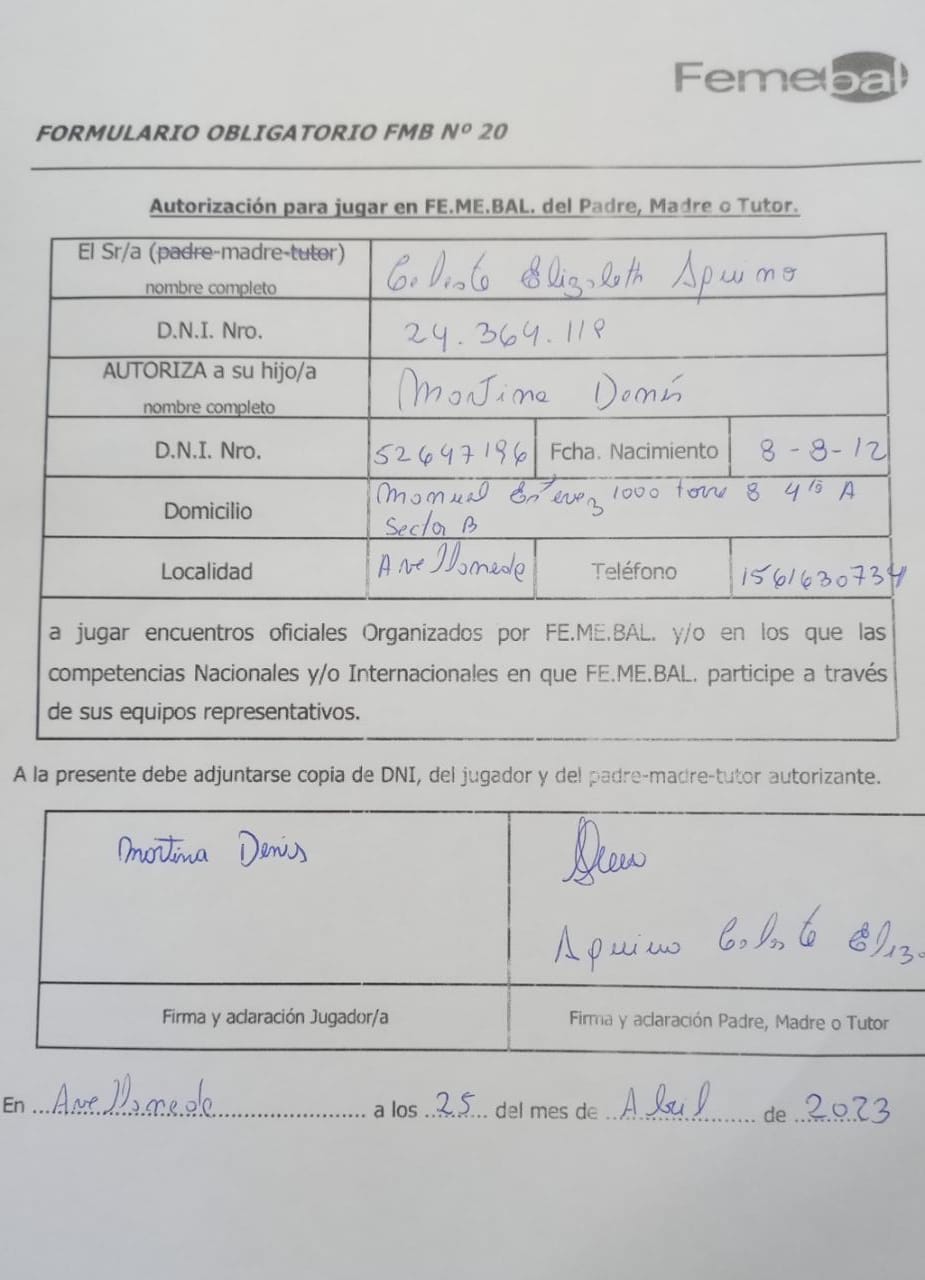 Femebal
FORMULARIO OBLIGATORIO FMB Nº 20
Autorización para jugar en FE.ME.BAL. del Padre, Madre o Tutor.
El Sr/a (padre-madre-tutor)
nombre completo
Celeste Elizabeth Aquino
D.N.I. Nro.
24.364.118
AUTORIZA a su hijo/a
nombre completo
Martina Denis
D.N.I. Nro.
52647196
Fcha. Nacimiento
8-8-12
Domicilio
Manuel Estevez 1000 torre 8 4to A
Sector B
Localidad
Avellaneda
Teléfono
1561630734
a jugar encuentros oficiales Organizados por FE.ME.BAL. y/o en los que las
competencias Nacionales y/o Internacionales en que FE.ME.BAL. participe a través
de sus equipos representativos.
A la presente debe adjuntarse copia de DNI, del jugador y del padre-madre-tutor autorizante.
Martina Denis
Aquino Celeste Eliz.
Firma y aclaración Jugador/a
Firma y aclaración Padre, Madre o Tutor
En Avellaneda a los 25 del mes de Abril de 2023